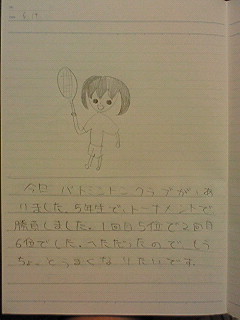 5.19
今日バドミントンクラブがあ
りました。5年生で、トーナメントで
勝負しました。1回目5位で2回目
6位でした。へただったので、もう
ちょっとうまくなりたいです。